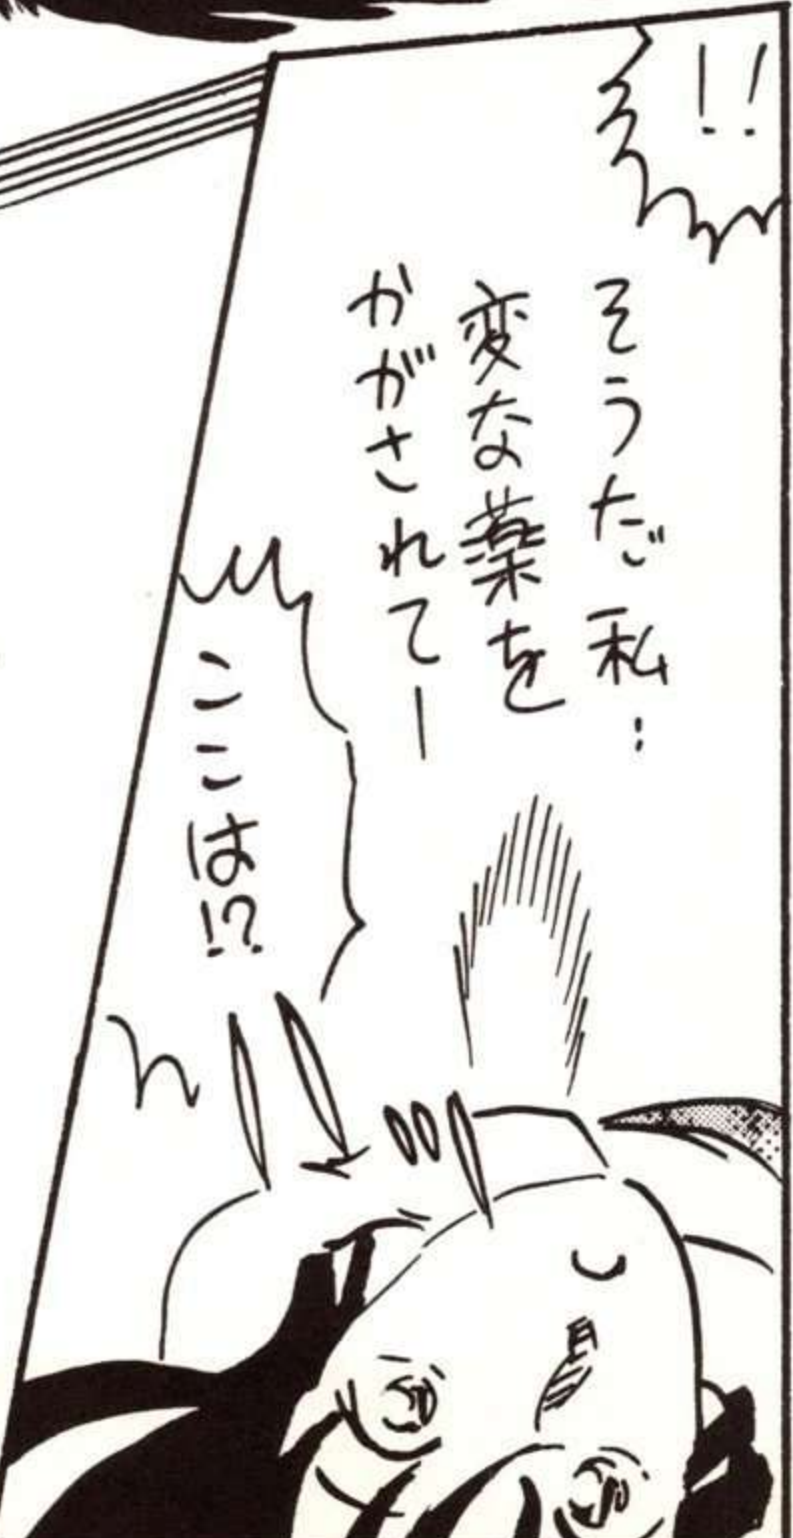 !!
そうだ 私…
変な薬を
かがされてー
ここは!?